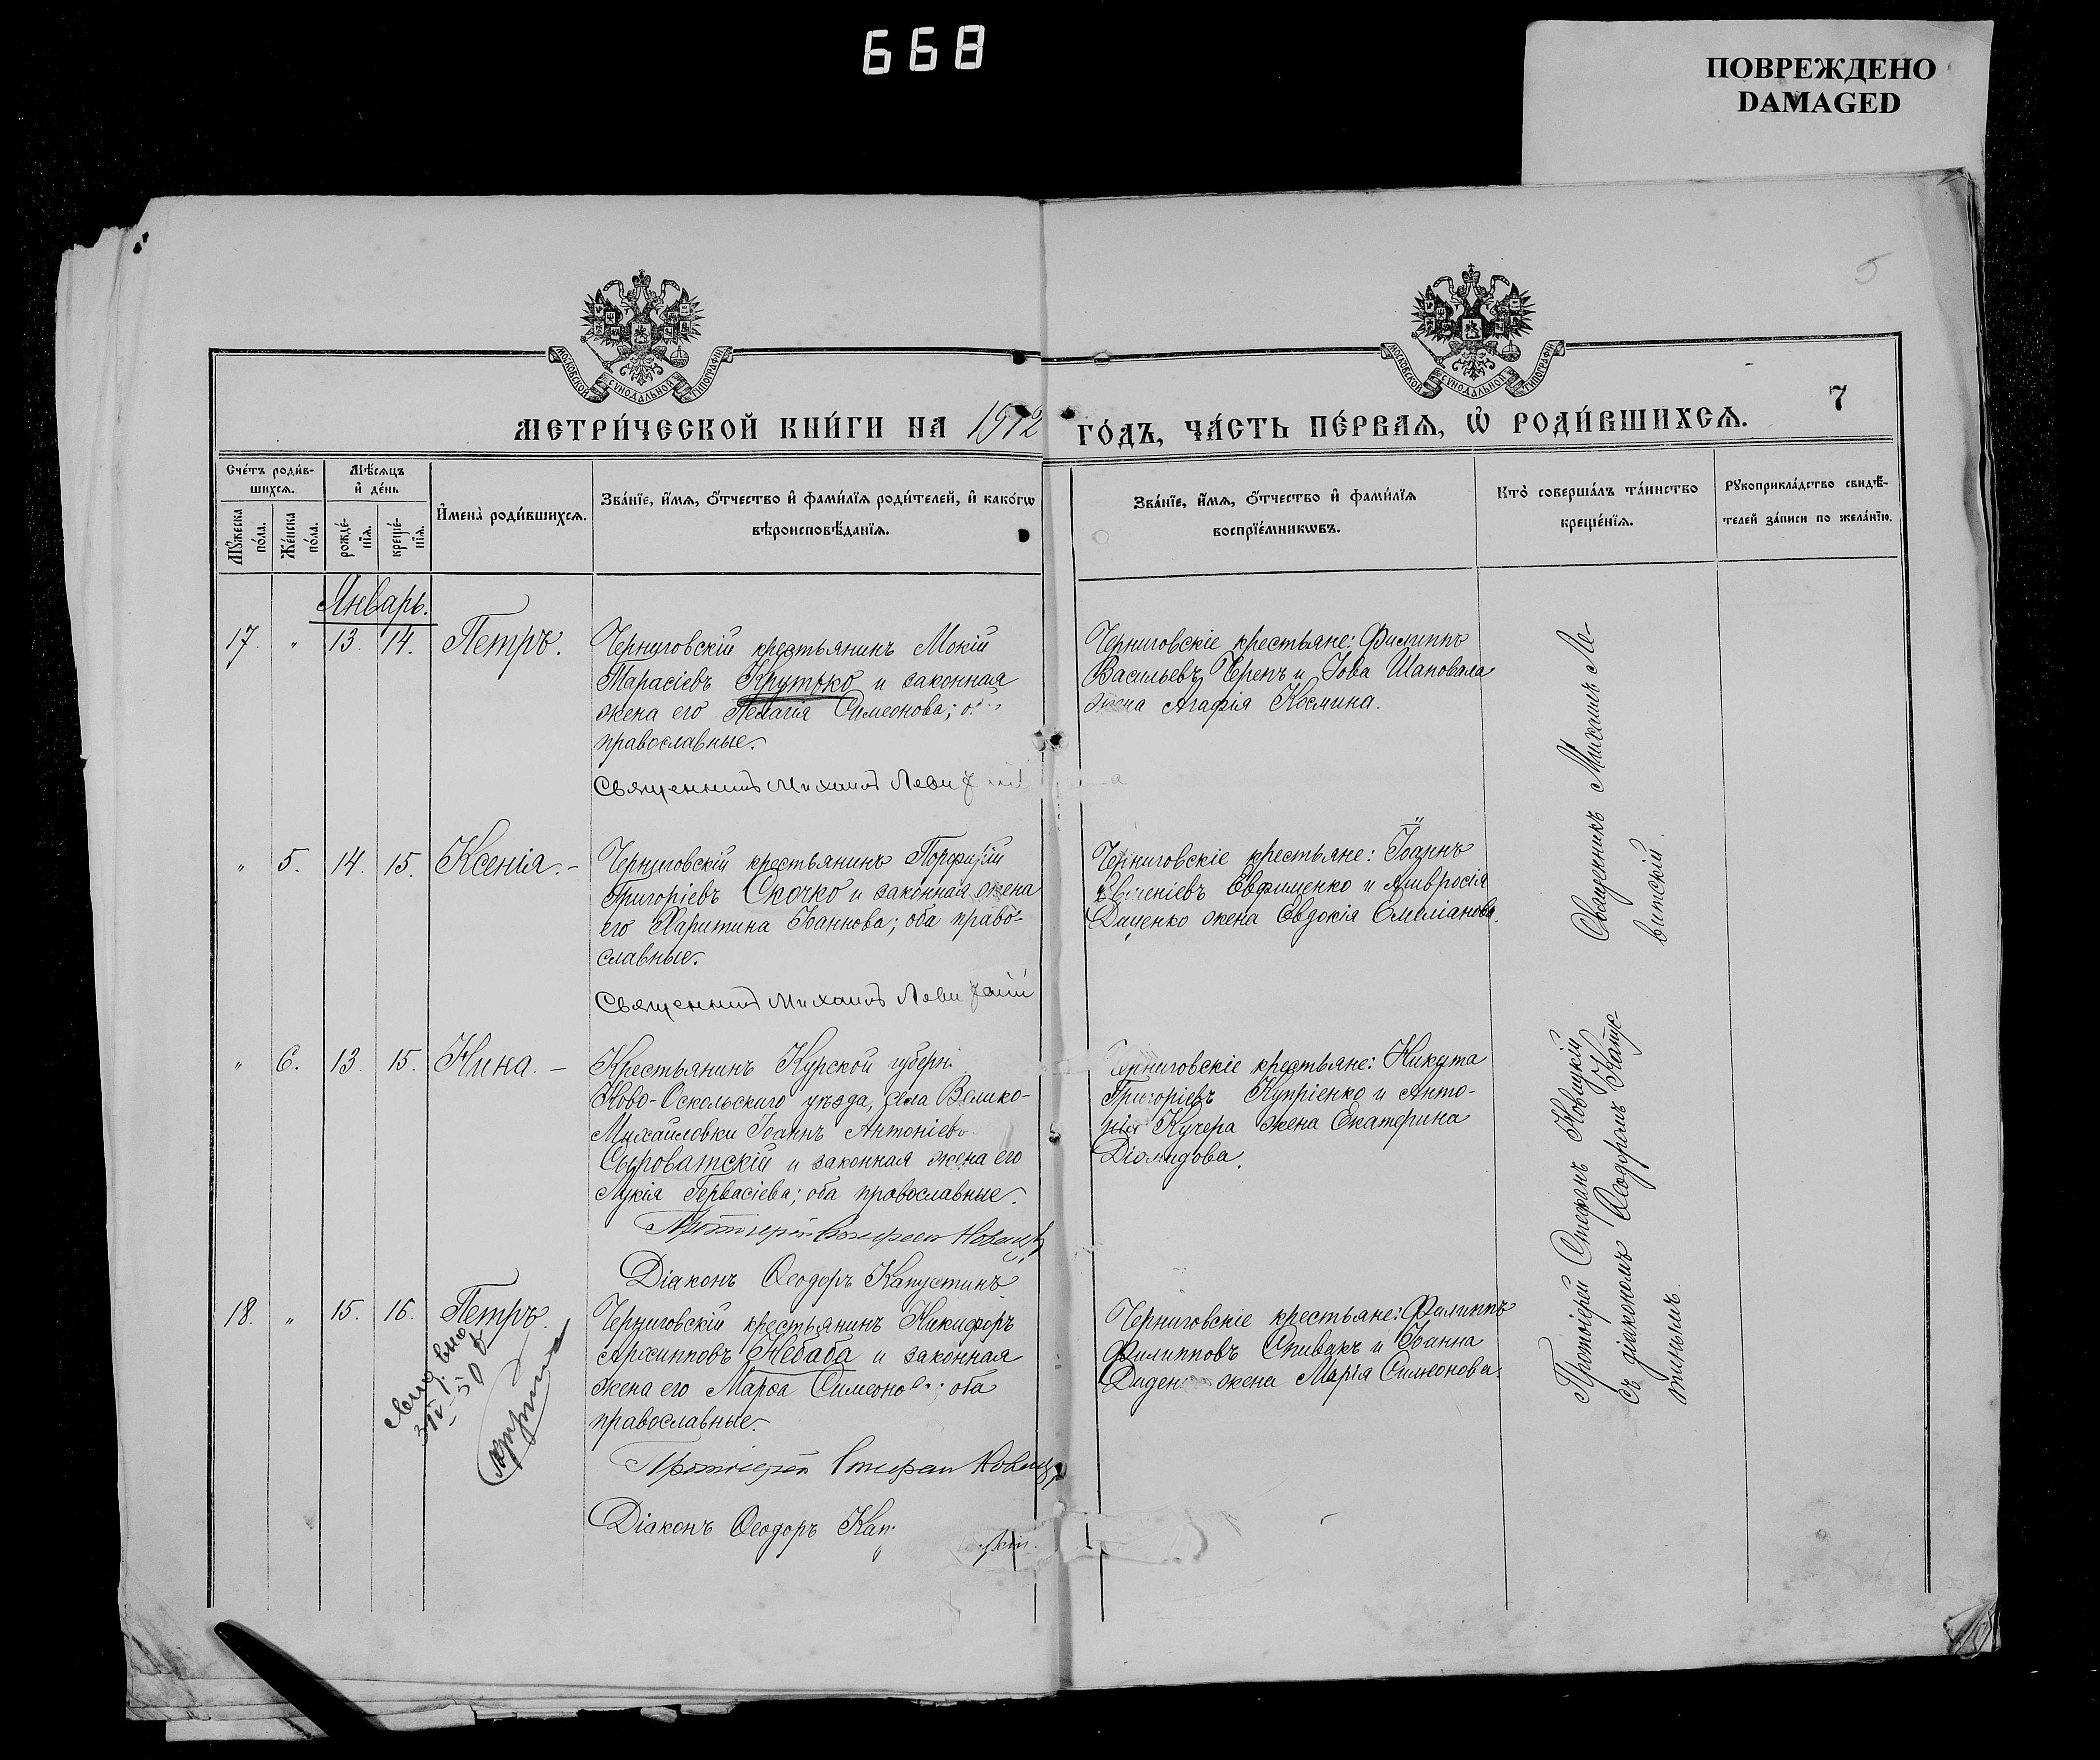 668
ПОВРЕЖДЕНО
DAMAGED
5
МОСКОВСКОЙ СѴНОДАЛЬНОЙ ТИПОГРАФІИ
МОСКОВСКОЙ СѴНОДАЛЬНОЙ ТИПОГРАФІИ
7
МЕТРИ́ЧЕСКОЙ КНИ́ГИ НА 1912 ГО́ДЪ, ЧА́СТЬ ПЕ́РВАЯ, Ѡ҆ РОДИ́ВШИХСЯ.
Сче́тъ роди́в-
шихся.
Мѣ́сяцъ
и҆ де́нь
Мꙋ́жеска
по́ла.
Же́нска
по́ла.
рожде́-
нїя.
креще́-
нїя.
И҆мена̀ роди́вшихся.
Зва́нїе, и҆́мя, ѻ҆́тчество и҆ фами́лїя роди́телей, и҆ како́гѡ
вѣроисповѣ́данїя.
Зва́нїе, и҆́мя, ѻ҆́тчество и҆ фами́лїя
воспрїе́мникѡвъ.
Кто̀ соверша́лъ та́инство
креще́нїя.
Рꙋкоприкла́дство свидѣ́-
телей за́писи по жела́нїю.
Январь.
17. " 13. 14. Петръ.
Черниговскій крестьянинъ Мокій
Тарасіевъ Крутько и законная
жена его Пелагія Симеонова;
православные.
Священникъ Михаилъ Леви
Черниговскіе крестьяне: Филиппъ
Васильевъ Черепъ и Іова Шаповала
жена Агафія Космина.
Священникъ Михаилъ Ле-
витскій.
" 5. 14. 15. Ксенія. -
Черниговскій крестьянинъ Порфирій
Григоріевъ Скочко и законная жена
его Харитина Іоаннова; оба право-
славные.
Священникъ Михаилъ Левитскій
Черниговскіе крестьяне: Іоаннъ
Евфименко и Амвросія
Даценко жена Евдокія Емиліанова.
" 6. 13. 15. Нина. -
Крестьянинъ Курской губерні
Ново-Оскольскаго уѣзда, села Велико-
Михайловки Іоаннъ Антоніевъ
Сыроватскій и законная жена его
Лукія Гервасіева; оба православные.
Протоіерей Стефанъ Новицкій
Діаконъ Ѳеодоръ Капустинъ.
Черниговскіе крестьяне: Никита
Григоріевъ Купріенко и Анто-
нія Кучера жена Екатерина
Діомидова.
Протоіерей Стефанъ Новицкій
съ діакономъ Ѳеодоромъ Капус-
тинымъ.
18. " 15. 16. Петръ.
Черниговскій крестьянинъ Никифоръ
Архипповъ Небаба и законная
жена его Марѳа Симеонова; оба
православные.
Протоіерей Стефанъ Новицкій
Діаконъ Ѳеодоръ Кап
Черниговскіе крестьяне: Филиппъ
Филипповъ Спивакъ и Іоанна
Диден жена Марія Симеонова.